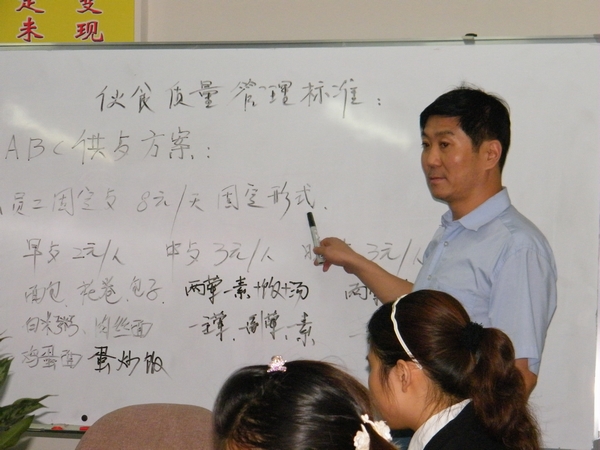 是 变
来 现
伙食质量管理标准：
ABC供与方案：
员工固定与 8元/天 固定形式.
早与2元/人 中与3元/人 与3元/人
面包、花卷、包子、 两荤一素+饭+汤 两荤
白米粥、肉丝面 一主荤、副荤、一素
鸡蛋面 蛋炒饭